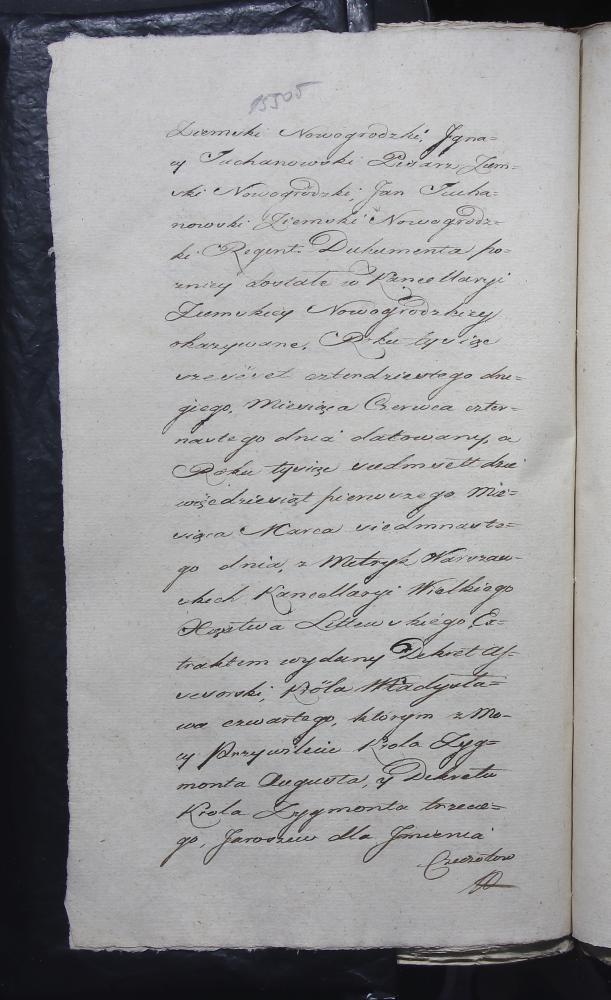 15505
Ziemski Nowogrodzki, Igna=
cy Tuchanowski Pisarz Ziem=
ski Nowogrodzki, Jan Tucha=
nowski Ziemski Nowogrodz=
ki Regent. Dukumenta po=
zniey dostałe w Kancellaryi
Ziemskiey Nowogrodzkiey
okazywane. Roku tysiąc
szescset czterdziestego dru=
giego, Miesiąca Czerwca czter=
nastego dnia datowany, a
Roku tysiąc siedmsett dzie
więcdziesiąt pierwszego Mie=
siąca Marca siedmnaste=
go dnia, z Metryk Warszaw=
skich Kancellaryi Wielkiego
Xięstwa Littewskiego Ex=
traktem wydany Dekret As=
sesorski, Króla Władysła=
wa czwartego, którym z Mo=
cy Przywileiu Krola Zyg=
monta Augusta, y Dekretu
Krola Zygmonta trzecie=
go, Jaroszew dla Imienia
Czeczotow